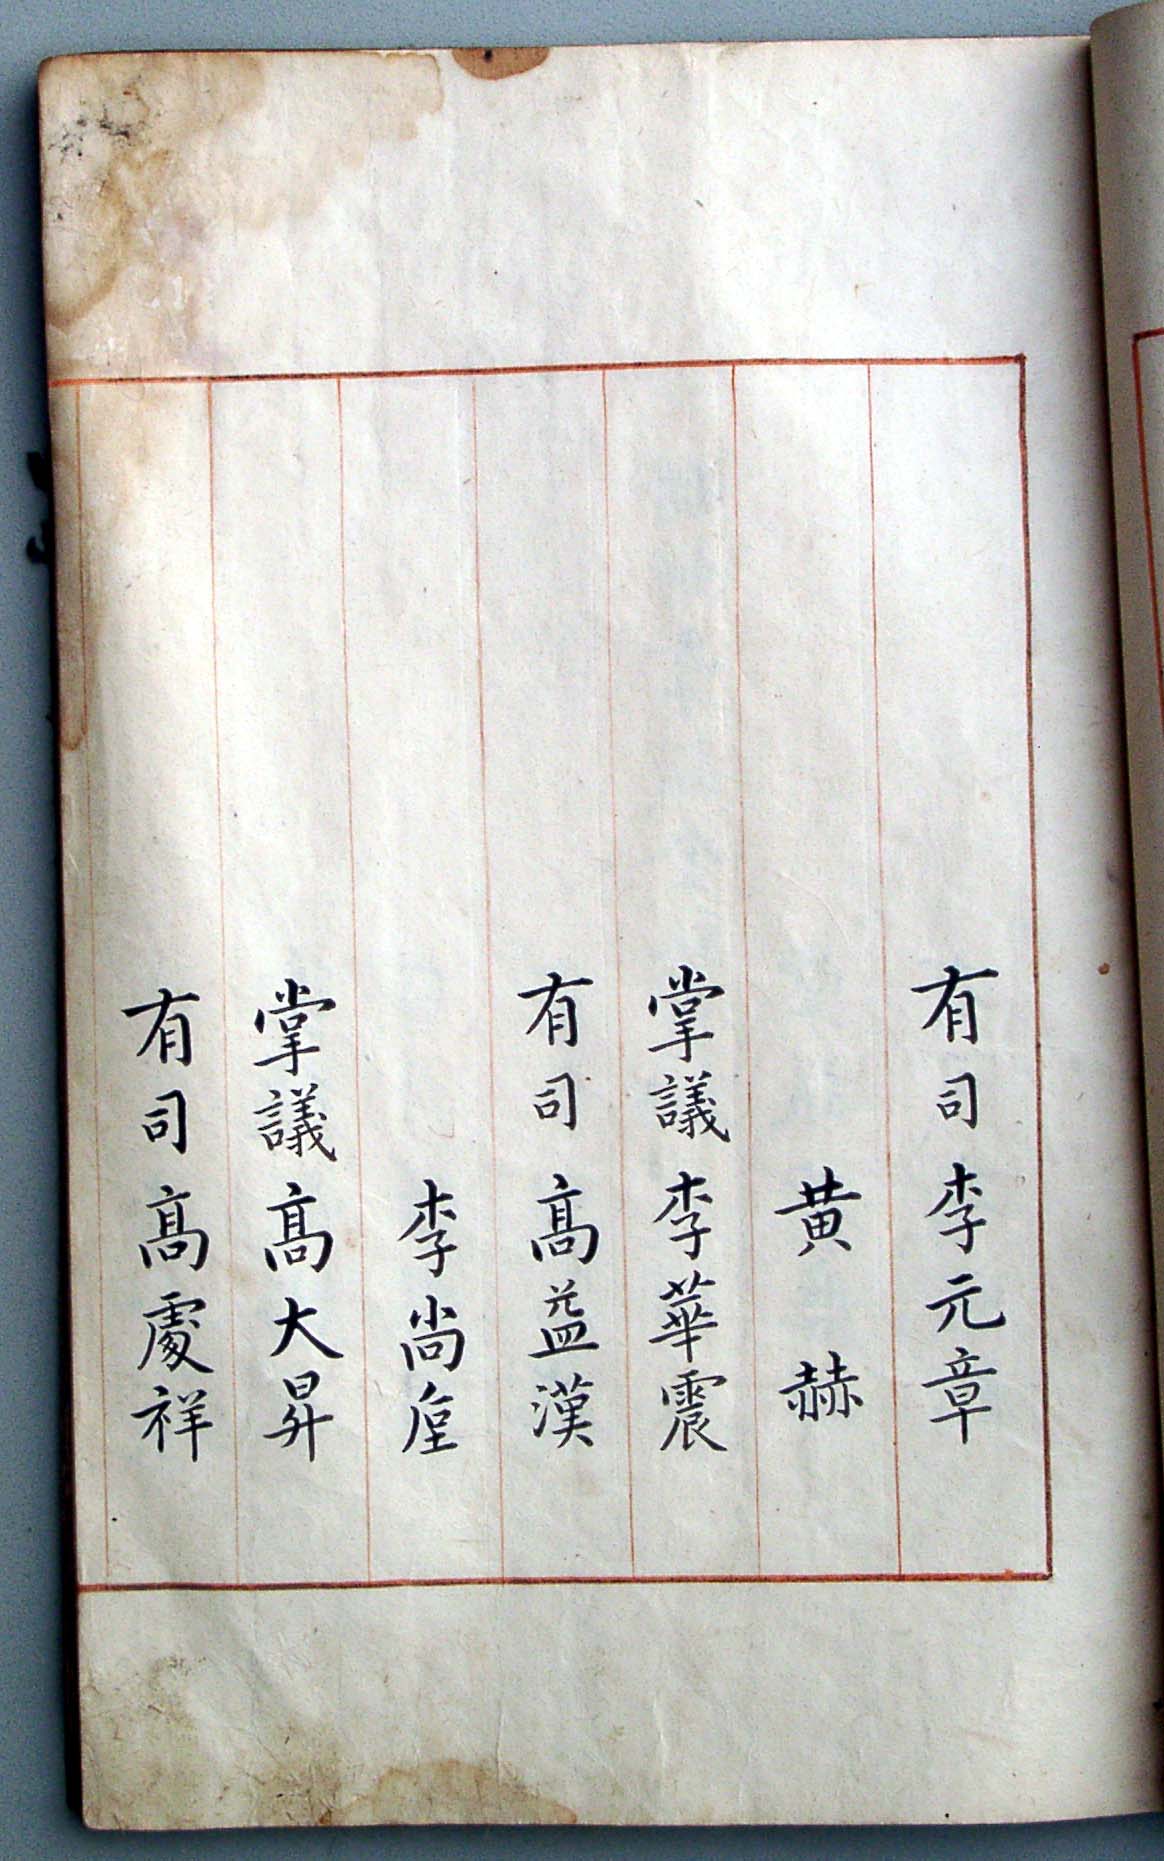 有司李元章
黄赫
掌議李華震
有司髙益漢
李尚垕
掌議髙大昇
有司髙慶祥